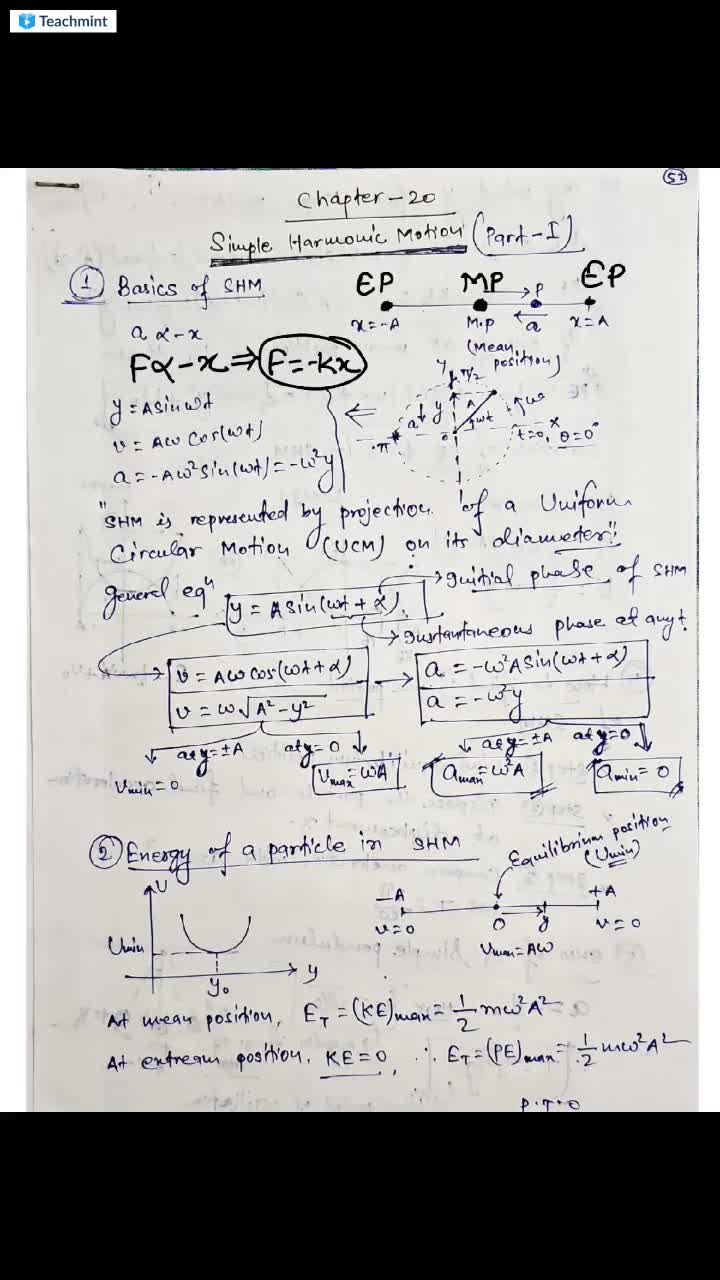 Teachmint
52
Chapter-20
Simple Harmonic Motion (Part-I)
① Basics of SHM
EP MP EP
P
x=-A M.P a x=A
(Mean position)
a ∝ -x
F∝-x ⇒ F=-kx
y π/2
y = A sin ωt
a y A ωt ω
π o t=0, θ=0° x
v = Aω cos(ωt)
a = -Aω² sin(ωt) = -ω²y
"SHM is represented by projection of a Uniform
Circular Motion (UCM) on its diameter"
general eqⁿ
y = A sin(ωt + α) → Initial phase of SHM
→ Instantaneous phase at any t
v = Aω cos(ωt + α) → a = -ω²A sin(ωt + α)
v = ω√A²-y² a = -ω²y
at y=±A at y=0 at y=±A at y=0
vmin = 0 vmax = ωA amax = ω²A amin = 0
② Energy of a particle in SHM
Equilibrium position
(Umin)
U
-A O y +A
v=0 vmax = Aω v=0
Umin
y₀ y
At mean position, E_T = (KE)max = 1/2 mω²A²
At extream position, KE = 0, ∴ E_T = (PE)max = 1/2 mω²A²